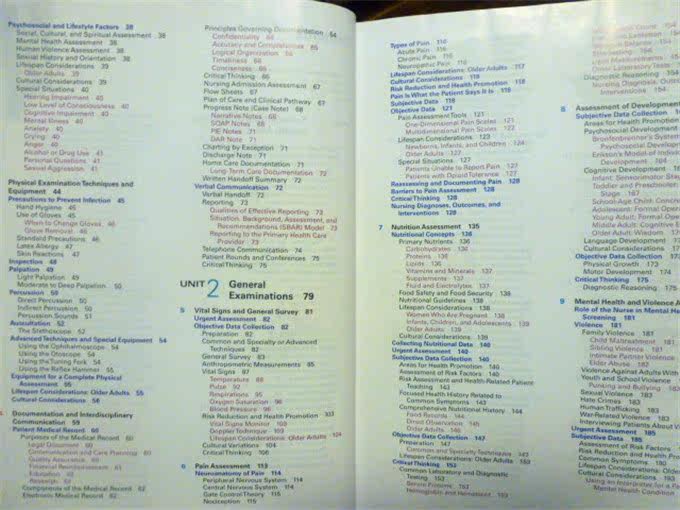 Psychosocial and Lifestyle Factors 38
Social, Cultural, and Spiritual Assessment 38
Mental Health Assessment 38
Human Violence Assessment 38
Sexual History and Orientation 38
Lifespan Considerations 39
Older Adults 39
Cultural Considerations 39
Special Situations 40
Hearing Impairment 40
Low Level of Consciousness 40
Cognitive Impairment 40
Mental Illness 40
Anxiety 40
Crying 40
Anger 40
Alcohol or Drug Use 41
Personal Questions 41
Sexual Aggression 41
Physical Examination Techniques and
Equipment 44
Precautions to Prevent Infection 45
Hand Hygiene 45
Use of Gloves 45
When to Change Gloves 46
Glove Removal 46
Standard Precautions 46
Latex Allergy 47
Skin Reactions 47
Inspection 48
Palpation 49
Light Palpation 49
Moderate to Deep Palpation 50
Percussion 50
Direct Percussion 50
Indirect Percussion 50
Percussion Sounds 51
Auscultation 52
The Stethoscope 52
Advanced Techniques and Special Equipment 54
Using the Ophthalmoscope 54
Using the Otoscope 54
Using the Tuning Fork 54
Using the Reflex Hammer 55
Equipment for a Complete Physical
Assessment 55
Lifespan Considerations: Older Adults 55
Cultural Considerations 56
Documentation and Interdisciplinary
Communication 59
Patient Medical Record 60
Purposes of the Medical Record 60
Legal Document 60
Communication and Care Planning 60
Quality Assurance 60
Financial Reimbursement 61
Education 62
Research 62
Components of the Medical Record 62
Electronic Medical Record 62
Principles Governing Documentation 64
Confidentiality 64
Accuracy and Completeness 65
Logical Organization 66
Timeliness 66
Conciseness 66
Critical Thinking 66
Nursing Admission Assessment 67
Flow Sheets 67
Plan of Care and Clinical Pathway 67
Progress Note (Case Note) 68
Narrative Notes 68
SOAP Notes 68
PIE Notes 71
DAR Note 71
Charting by Exception 71
Discharge Note 71
Home Care Documentation 71
Long-Term Care Documentation 72
Written Handoff Summary 72
Verbal Communication 72
Verbal Handoff 72
Reporting 73
Qualities of Effective Reporting 73
Situation, Background, Assessment, and
Recommendations (SBAR) Model 73
Reporting to the Primary Health Care
Provider 73
Telephone Communication 74
Patient Rounds and Conferences 75
Critical Thinking 75
UNIT 2 General
Examinations 79
5 Vital Signs and General Survey 81
Urgent Assessment 82
Objective Data Collection 82
Preparation 82
Common and Specialty or Advanced
Techniques 82
General Survey 83
Anthropometric Measurements 85
Vital Signs 87
Temperature 88
Pulse 92
Respirations 95
Oxygen Saturation 96
Blood Pressure 96
Risk Reduction and Health Promotion 103
Vital Signs Monitor 103
Doppler Technique 103
Lifespan Considerations: Older Adults 104
Cultural Variations 104
Critical Thinking 106
6 Pain Assessment 113
Neuroanatomy of Pain 114
Peripheral Nervous System 114
Central Nervous System 114
Gate Control Theory 115
Nociception 115
Types of Pain 116
Acute Pain 116
Chronic Pain 116
Neuropathic Pain 116
Lifespan Considerations: Older Adults 117
Cultural Considerations 118
Risk Reduction and Health Promotion 118
Pain Is What the Patient Says It Is 118
Subjective Data 118
Objective Data 121
Pain Assessment Tools 121
One-Dimensional Pain Scales 121
Multidimensional Pain Scales 122
Lifespan Considerations 123
Newborns, Infants, and Children 124
Older Adults 127
Special Situations 127
Patients Unable to Report Pain 127
Patients with Opioid Tolerance 127
Reassessing and Documenting Pain 128
Barriers to Pain Assessment 128
Critical Thinking 128
Nursing Diagnoses, Outcomes, and
Interventions 128
7 Nutrition Assessment 135
Nutritional Concepts 136
Primary Nutrients 136
Carbohydrates 136
Proteins 136
Lipids 136
Vitamins and Minerals 137
Supplements 137
Fluid and Electrolytes 137
Food Safety and Food Security 138
Nutritional Guidelines 138
Lifespan Considerations 138
Women Who Are Pregnant 138
Infants, Children, and Adolescents 139
Older Adults 139
Cultural Considerations 139
Collecting Nutritional Data 140
Urgent Assessment 140
Subjective Data Collection 140
Areas for Health Promotion 140
Assessment of Risk Factors 140
Risk Assessment and Health-Related Patient
Teaching 143
Focused Health History Related to
Common Symptoms 143
Comprehensive Nutritional History 144
Food Records 144
Direct Observation 145
Older Adults 146
Objective Data Collection 147
Preparation 147
Common and Specialty Techniques 147
Lifespan Considerations: Older Adults 153
Critical Thinking 153
Common Laboratory and Diagnostic
Testing 153
Serum Proteins 153
Hemoglobin and Hematocrit 153
Diagnostic Reasoning 154
Nursing Diagnosis, Outco
Interventions 154
8 Assessment of Developmen
Subjective Data Collection
Areas for Health Promotion
Psychosocial Development
Bronfenbrenner's System
Psychosocial Developm
Erikson's Model of Individ
Development 164
Cognitive Development
Infant: Sensorimotor Stag
Toddler and Preschooler:
Stage 167
School-Age Child: Concre
Adolescent: Formal Oper
Young Adult: Formal Oper
Middle Adult: Cognitive E
Older Adult: Wisdom
Language Development
Cultural Considerations
Objective Data Collection
Physical Growth 173
Motor Development 174
Critical Thinking 175
Diagnostic Reasoning 175
9 Mental Health and Violence A
Role of the Nurse in Mental He
Screening 181
Violence 181
Family Violence 181
Child Maltreatment 181
Sibling Violence 181
Intimate Partner Violence
Elder Abuse 182
Violence Against Adults With
Youth and School Violence
Punking and Bullying
Sexual Violence 183
Hate Crimes 183
Human Trafficking 183
War-Related Violence
Interviewing Patients About Vi
Urgent Assessment 185
Subjective Data 185
Assessment of Risk Factors
Risk Reduction and Health Pr
Common Symptoms 190
Lifespan Considerations: Older
Cultural Considerations
Special Situations
Using an Interpreter for a Pa
Mental Health Condition